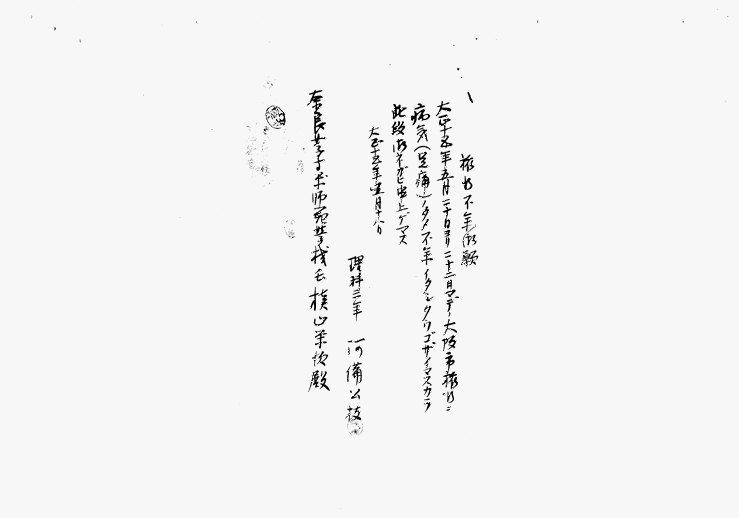 旅行不参御願
大正十五年五月二十日ヨリ二十二日マデ大阪市旅行ニ
病気(足痛)ノタメ不参イタシタクゴザイマスカラ
此段御ネガヒ申上ゲマス
大正十五年五月十八日
理科三年
奈良女子高等師範学校長 槇山栄次殿